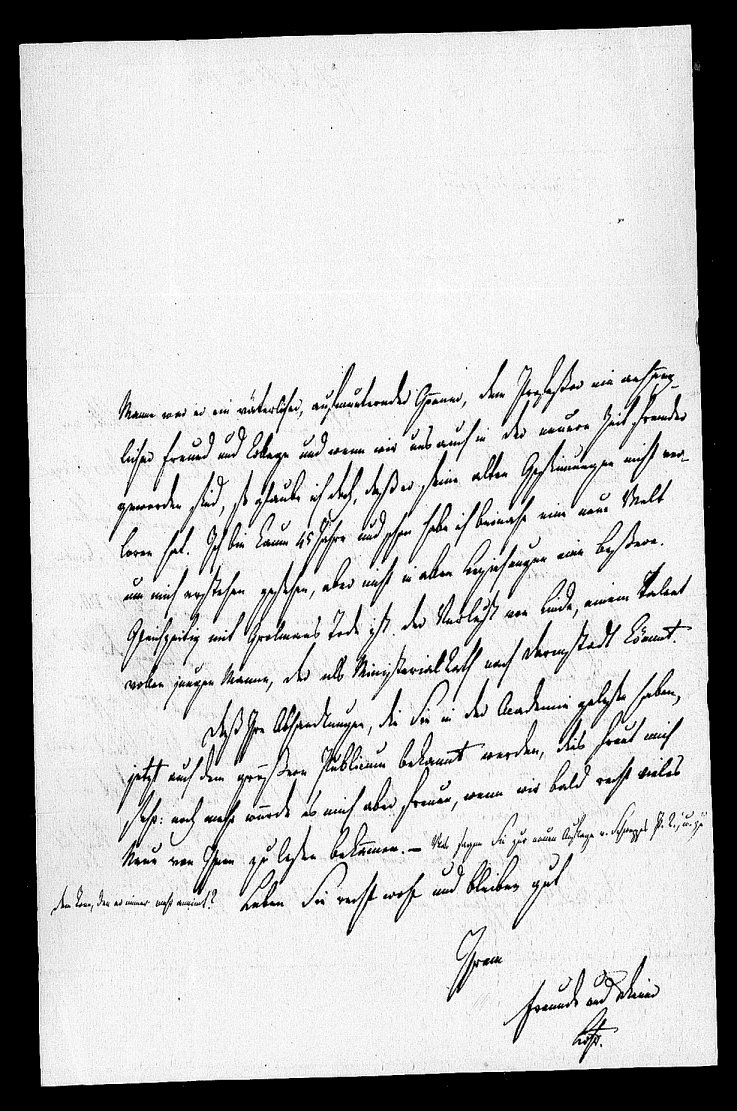 Manne war er ein väterlicher, aufmunternder Gönner, dem Professor ein anhäng-
licher Freund und College und wenn wir uns auch in der neuern Zeit fremder
geworden sind, so glaube ich doch, daß er seine alten Gesinnungen nicht ver-
loren hat. Ich bin kaum 45 Jahre und schon habe ich beinahe eine neue Welt
um mich erstehen gesehen, aber nicht in allen Beziehungen eine bessere.
Gleichzeitig mit Grolmans Tode ist der Verlust von Linde, einem Talent
vollen jungen Manne, der als Ministerial Rath nach Darmstadt kömmt.
Daß Ihre Abhandlungen, die Sie in der Academie gelesen haben,
jetzt auch dem größern Publicum bekannt werden, dies freut mich
sehr: noch mehr würde es mich aber freuen, wenn wir bald recht vieles
Neue von Ihnen zu lesen bekämen. – Was sagen Sie zur neuen Auflage v. P. R., u. zu
dem Tone, den er immer mehr annimt? Leben Sie recht wohl und bleiben gut
Ihrem
Freunde und Diener